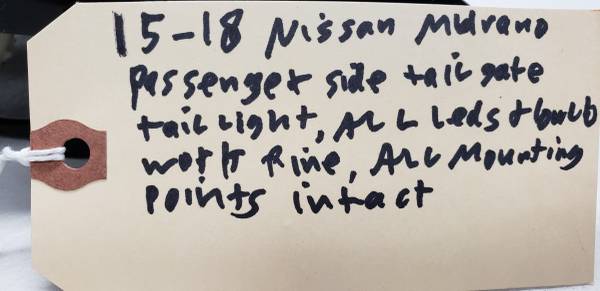 15-18 Nissan Murano
passenger side tailgate
tail light, ALL Leds + bulb
work fine, ALL Mounting
points intact